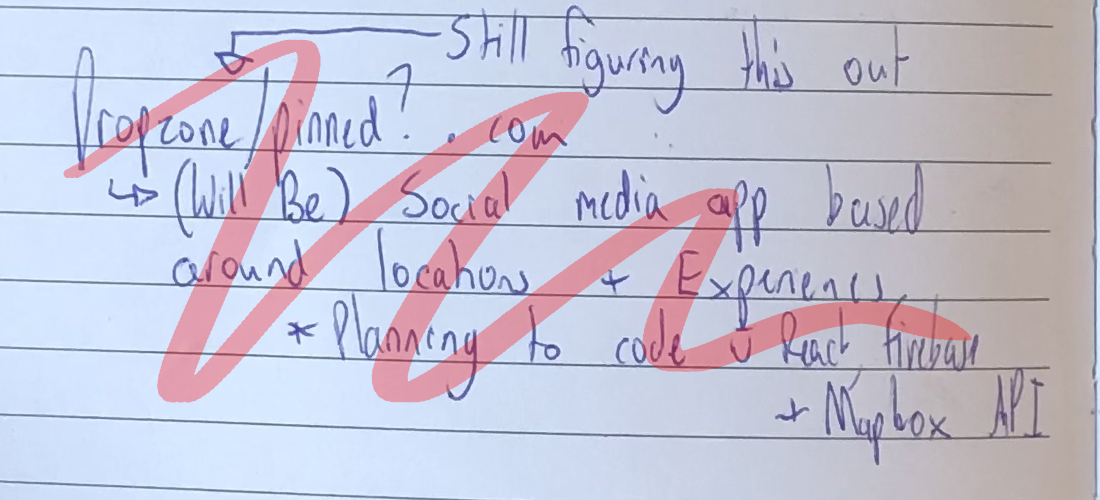 Still figuring this out
Dropzone/pinned? . . com
↳ (Will Be) Social media app based
around locations + Experiences
* Planning to code in React, firebase
+ Mapbox API